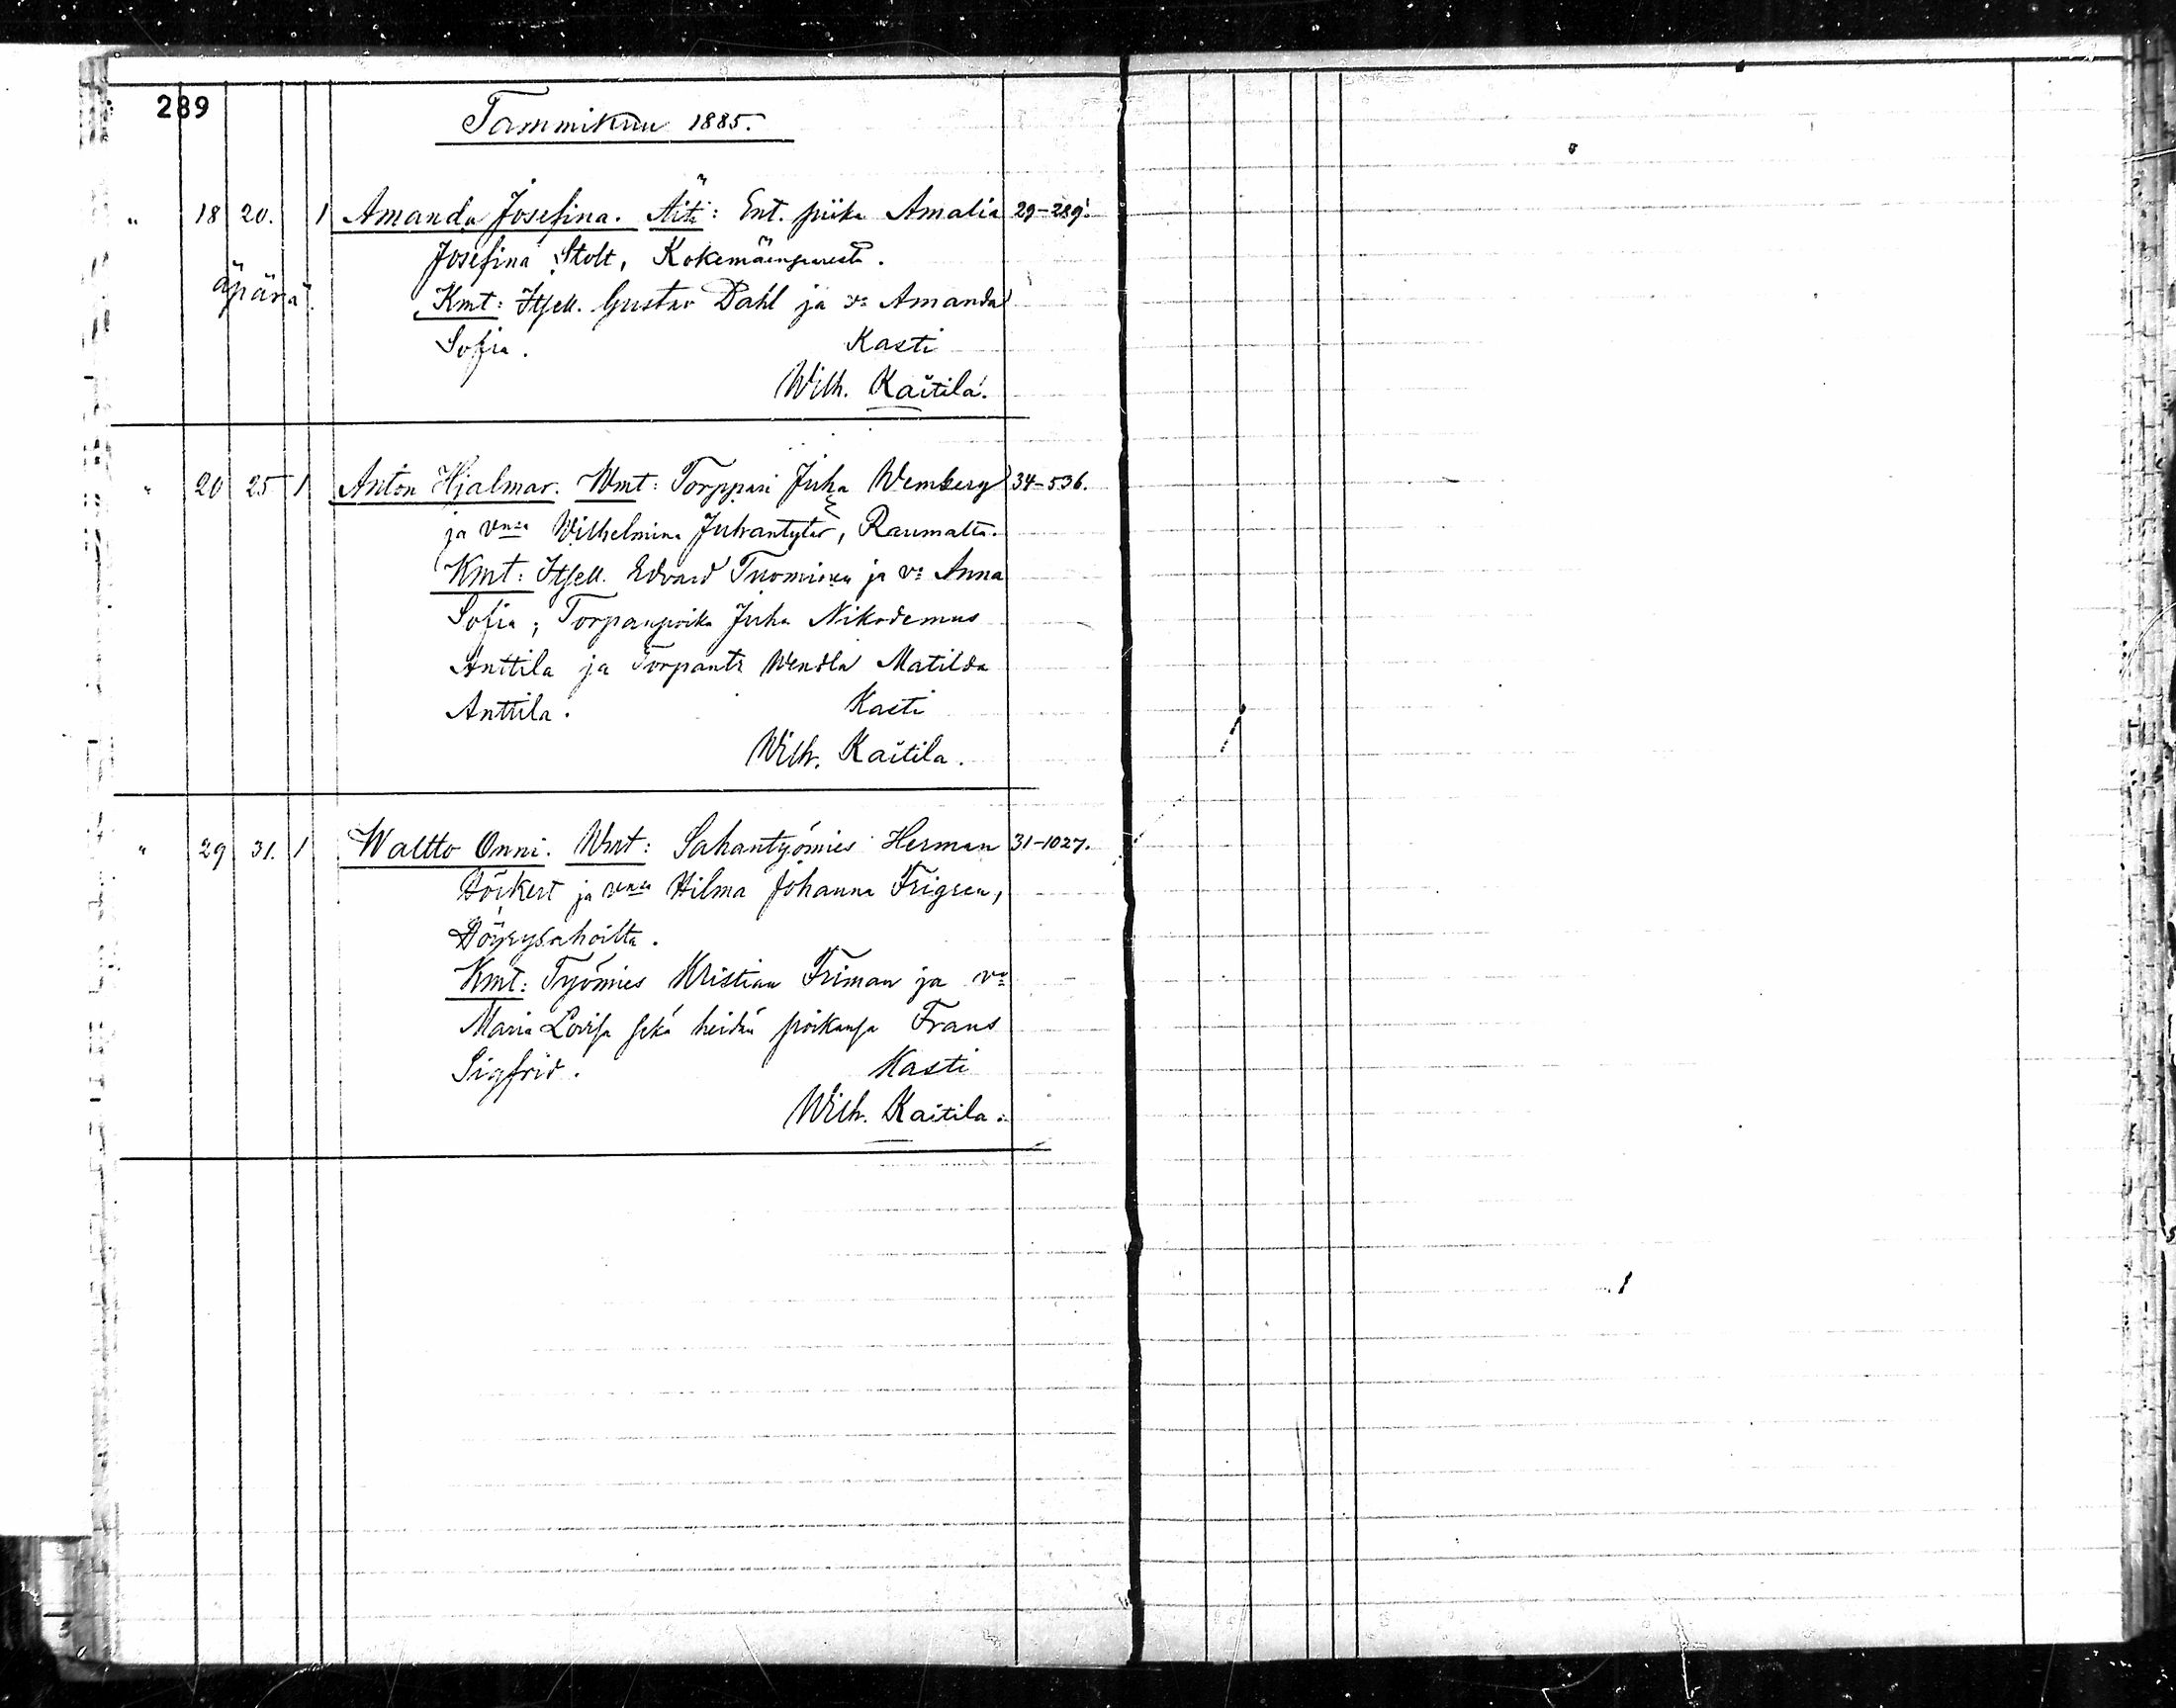 289
Tammikuu 1885.
" 18 20. 1 Amanda Josefina. Äiti: Ent. piika Amalia 29-289.
Josefina Stolt, Kokemäensuusta.
äpärä. Kmt: Itsell. Gustav Dahl ja vo Amanda
Sofia. Kasti
Wilh. Kaitila.
" 20 25 1 Anton Hjalmar. Wmt: Torppari Juha Wemberg 34-536.
ja vnsa Wilhelmina Juhantytär, Raumalta.
Kmt: Itsell. Edvard Tuominen ja vo Anna
Sofia; Torpanpoika Juha Nikodemus
Anttila ja Torpantr Wendla Matilda
Anttila. Kasti
Wilh. Kaitila.
" 29 31. 1 Waltto Onni. Wmt: Sahantyömies Herman 31-1027.
ja vnsa Hilma Johanna
Höyrysahoilta.
Kmt: Työmies Kristian Friman ja vo
Maria Lovisa sekä heidän poikansa Frans
Sigfrid. Kasti
Wilh. Kaitila.